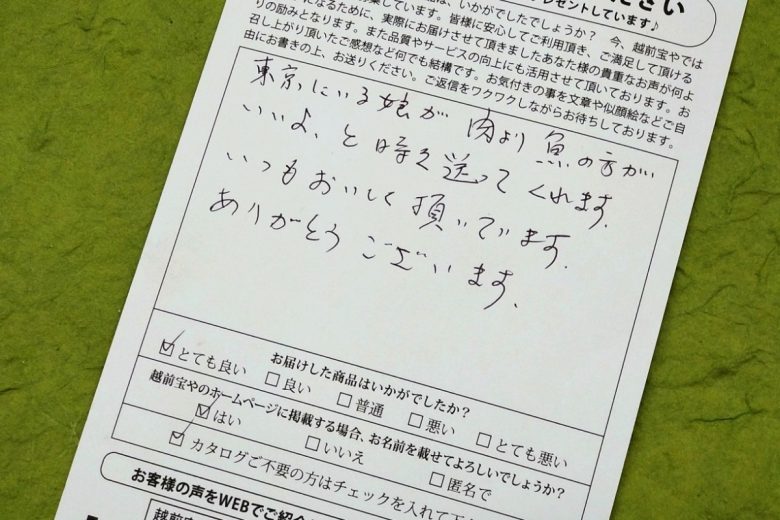 ださい
レゼントしています♪
は、いかがでしたでしょうか? 今、越前宝やでは
集しています。皆様に安心してご利用頂き、ご満足して頂ける
になるために、実際にお届けさせて頂きましたあなた様の貴重なお声が何よ
りの励みとなります。また品質やサービスの向上にも活用させて頂いております。お
召し上がり頂いたご感想など何でも結構です。お気付きの事を文章や似顔絵などご自
由にお書きの上、お送りください。ご返信をワクワクしながらお待ちしております。
東京にいる娘が 肉より魚の方が
いいよ、と時々送ってくれます。
いつもおいしく頂いています。
ありがとうございます。
お届けした商品はいかがでしたか?
☑とても良い □良い □普通 □悪い □とても悪い
越前宝やのホームページに掲載する場合、お名前を載せてよろしいでしょうか?
☑はい □いいえ □匿名で
☑カタログご不要の方はチェックを入れて下
お客様の声をWEBでご紹介
越前